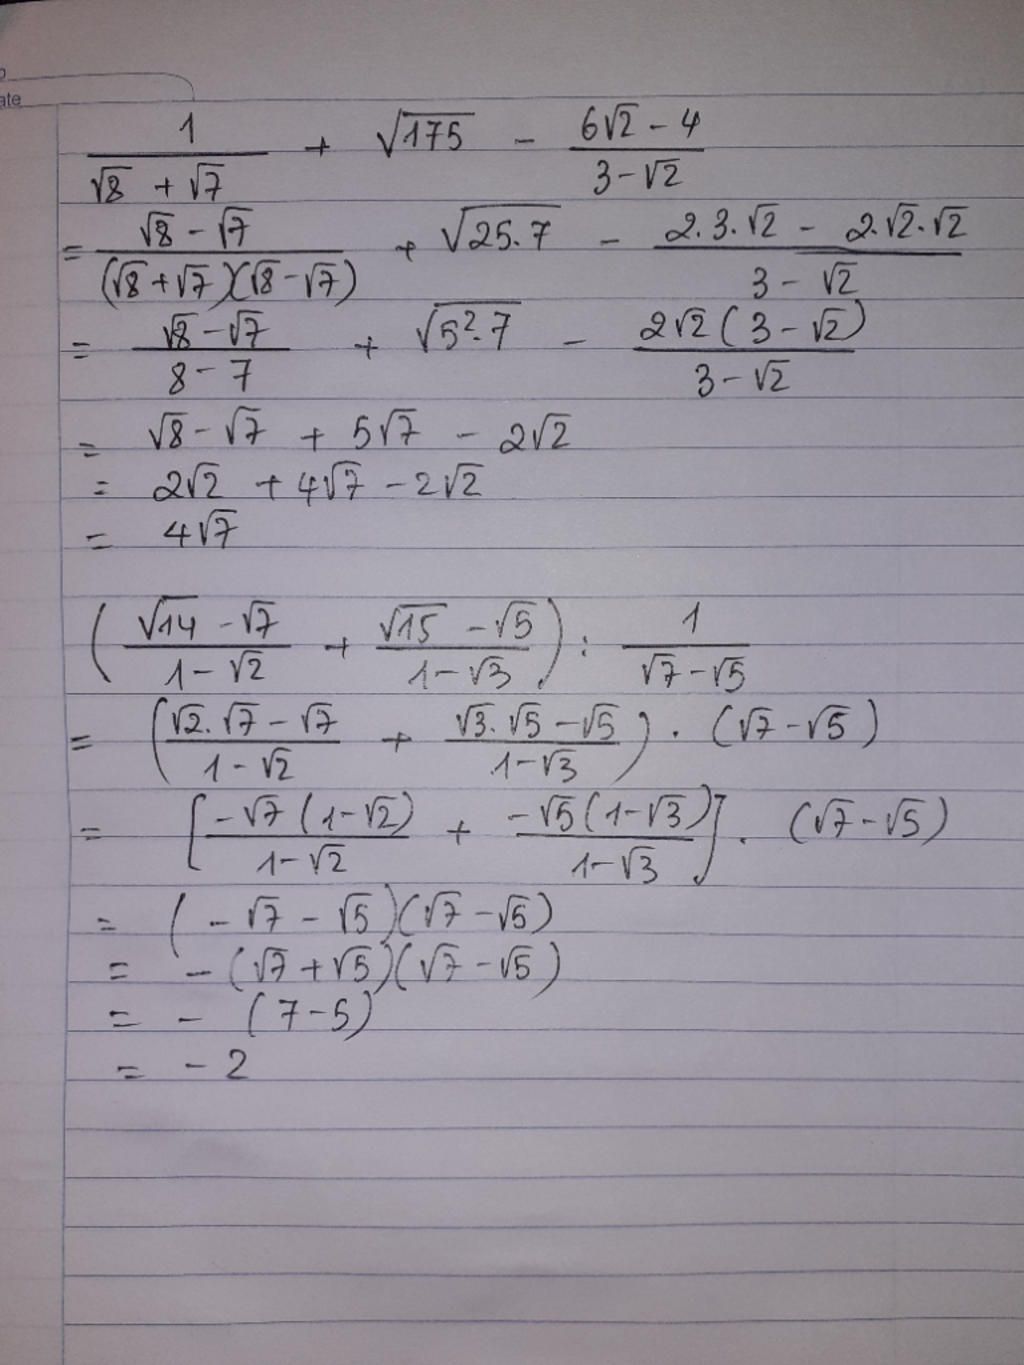 ate
1/(√8 + √7) + √175 - (6√2 - 4)/(3 - √2)
= (√8 - √7)/((√8 + √7)(√8 - √7)) + √(25.7) - (2.3.√2 - 2.√2.√2)/(3 - √2)
= (√8 - √7)/(8 - 7) + √(5².7) - (2√2(3 - √2))/(3 - √2)
= √8 - √7 + 5√7 - 2√2
= 2√2 + 4√7 - 2√2
= 4√7
((√14 - √7)/(1 - √2) + (√15 - √5)/(1 - √3)) : 1/(√7 - √5)
= ((√2.√7 - √7)/(1 - √2) + (√3.√5 - √5)/(1 - √3)) . (√7 - √5)
= [(-√7(1 - √2))/(1 - √2) + (-√5(1 - √3))/(1 - √3)] . (√7 - √5)
= (-√7 - √5)(√7 - √5)
= -(√7 + √5)(√7 - √5)
= - (7 - 5)
= - 2